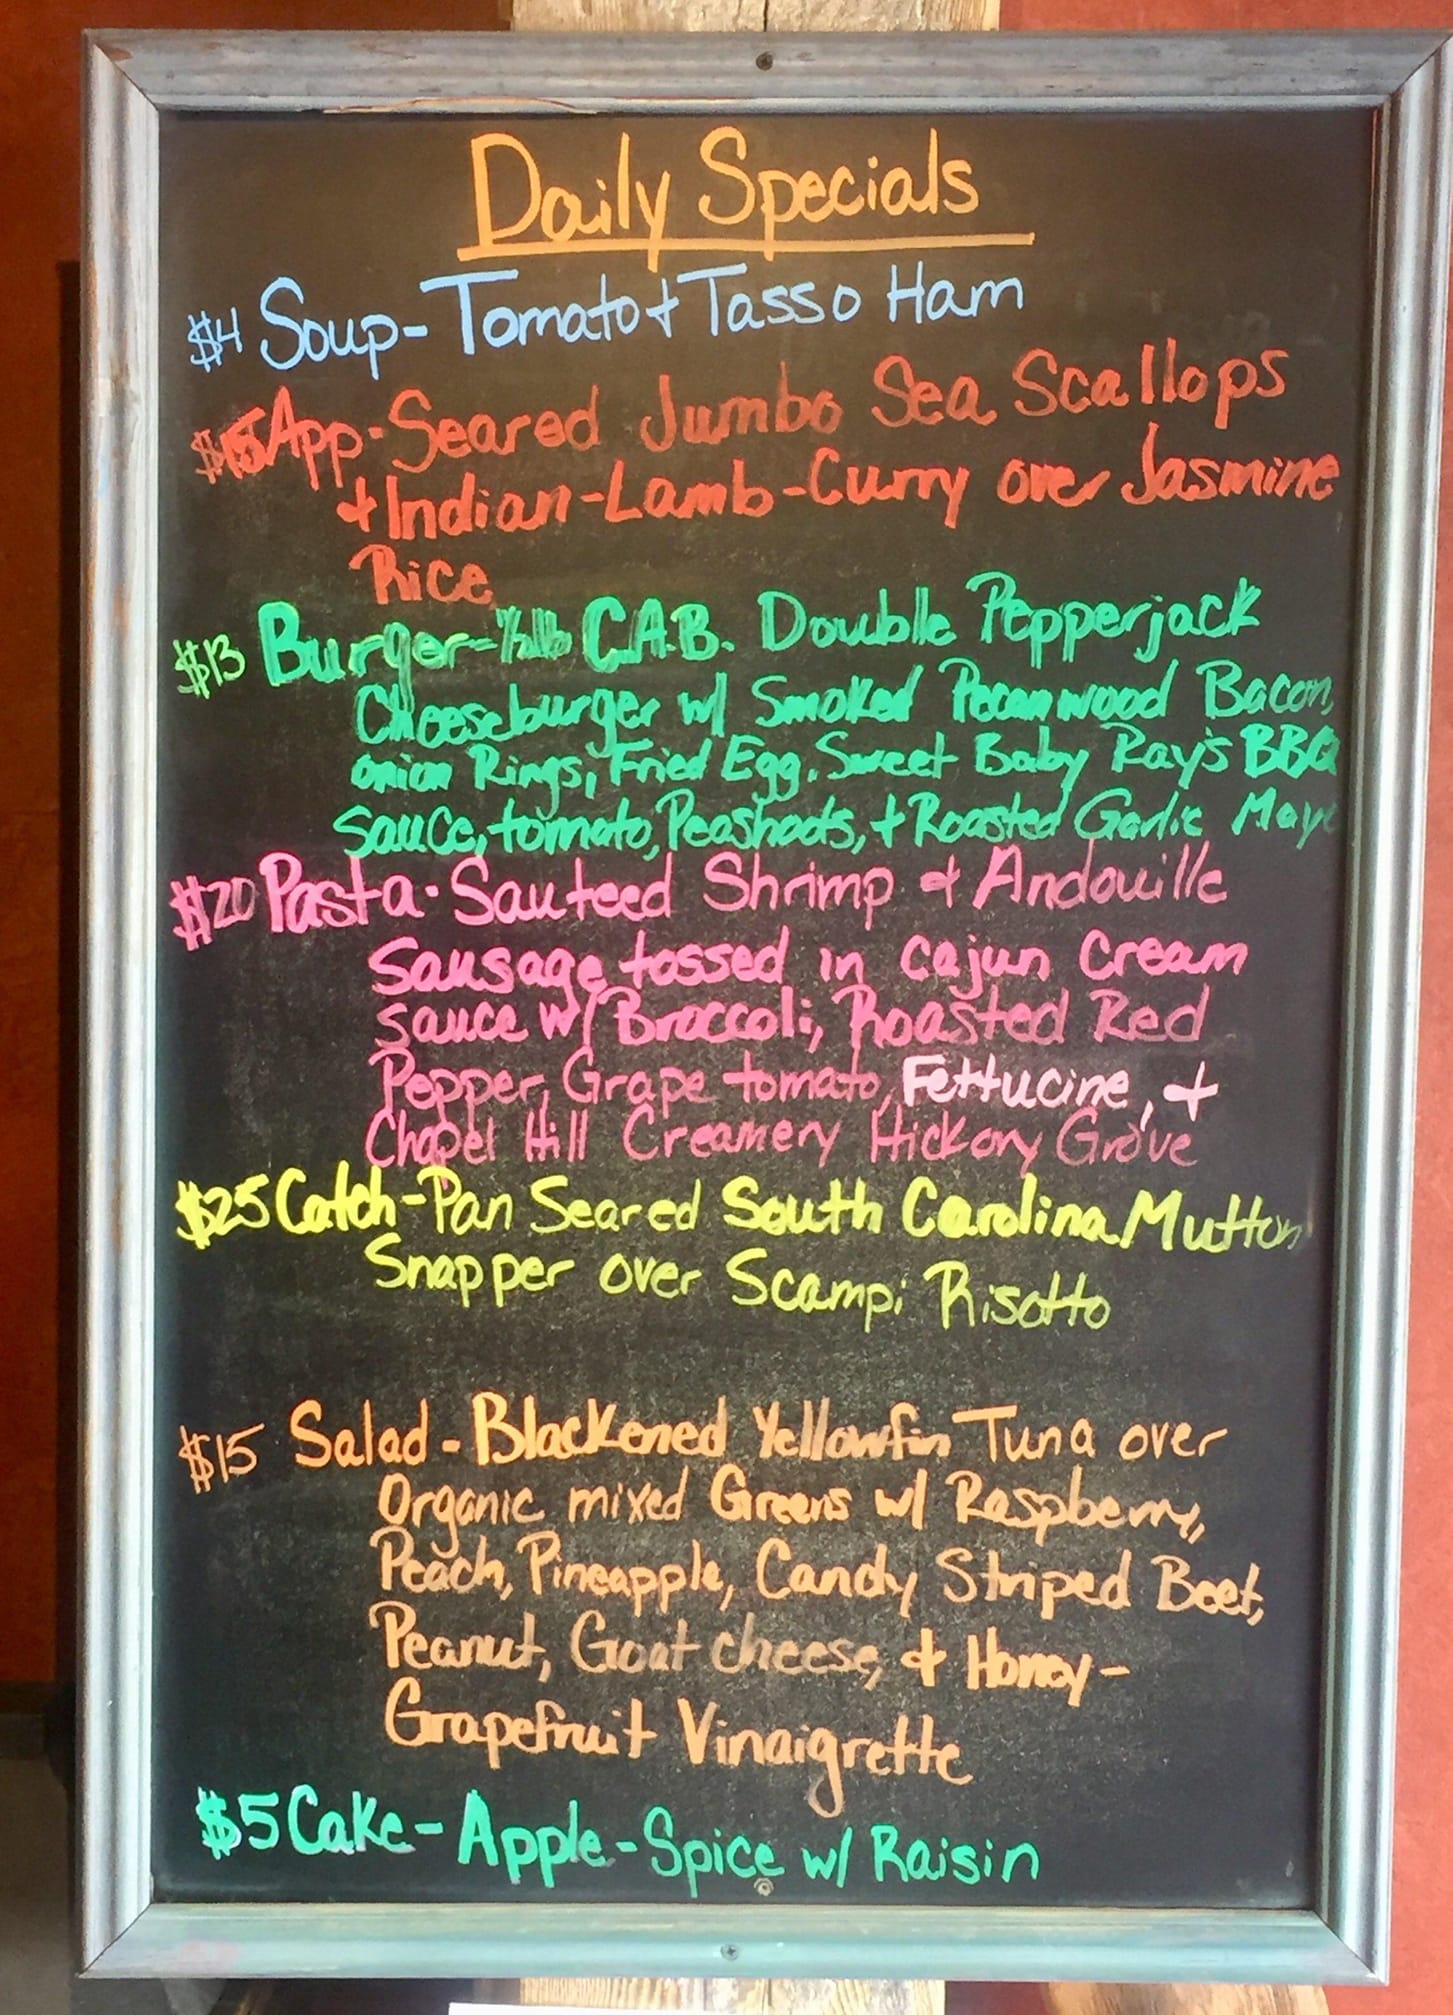 Daily Specials
$4 Soup-Tomato + Tasso Ham
$15 App-Seared Jumbo Sea Scallops
+ Indian-Lamb-Curry over Jasmine
Rice
$13 Burger-1/2lb C.A.B. Double Pepperjack
Cheeseburger w/ Smoked Pecanwood Bacon,
onion Rings, Fried Egg, Sweet Baby Ray's BBQ
sauce, tomato, Peashoots, + Roasted Garlic Mayo
$20 Pasta-Sauteed Shrimp + Andouille
Sausage tossed in Cajun Cream
sauce w/ Broccoli, Roasted Red
Pepper, Grape tomato, Fettucine, +
Chapel Hill Creamery Hickory Grove
$25 Catch-Pan Seared South Carolina Mutton
Snapper over Scampi Risotto
$15 Salad-Blackened Yellowfin Tuna over
Organic mixed Greens w/ Raspberry,
Peach, Pineapple, Candy Striped Beet,
Peanut, Goat cheese, + Honey-
Grapefruit Vinaigrette
$5 Cake-Apple-Spice w/ Raisin